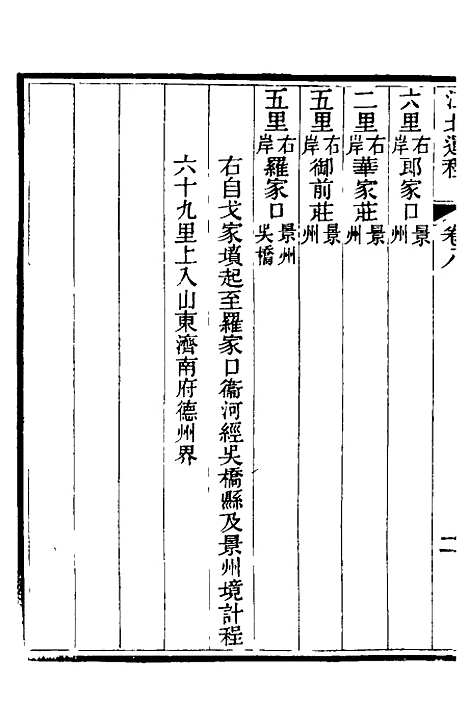 江北運程 卷八 二
六里右岸郎家口景州
二里右岸華家莊景州
五里右岸御前莊景州
五里右岸羅家口景州吳橋
右自戈家墳起至羅家口衞河經吳橋縣及景州境計程
六十九里上入山東濟南府德州界